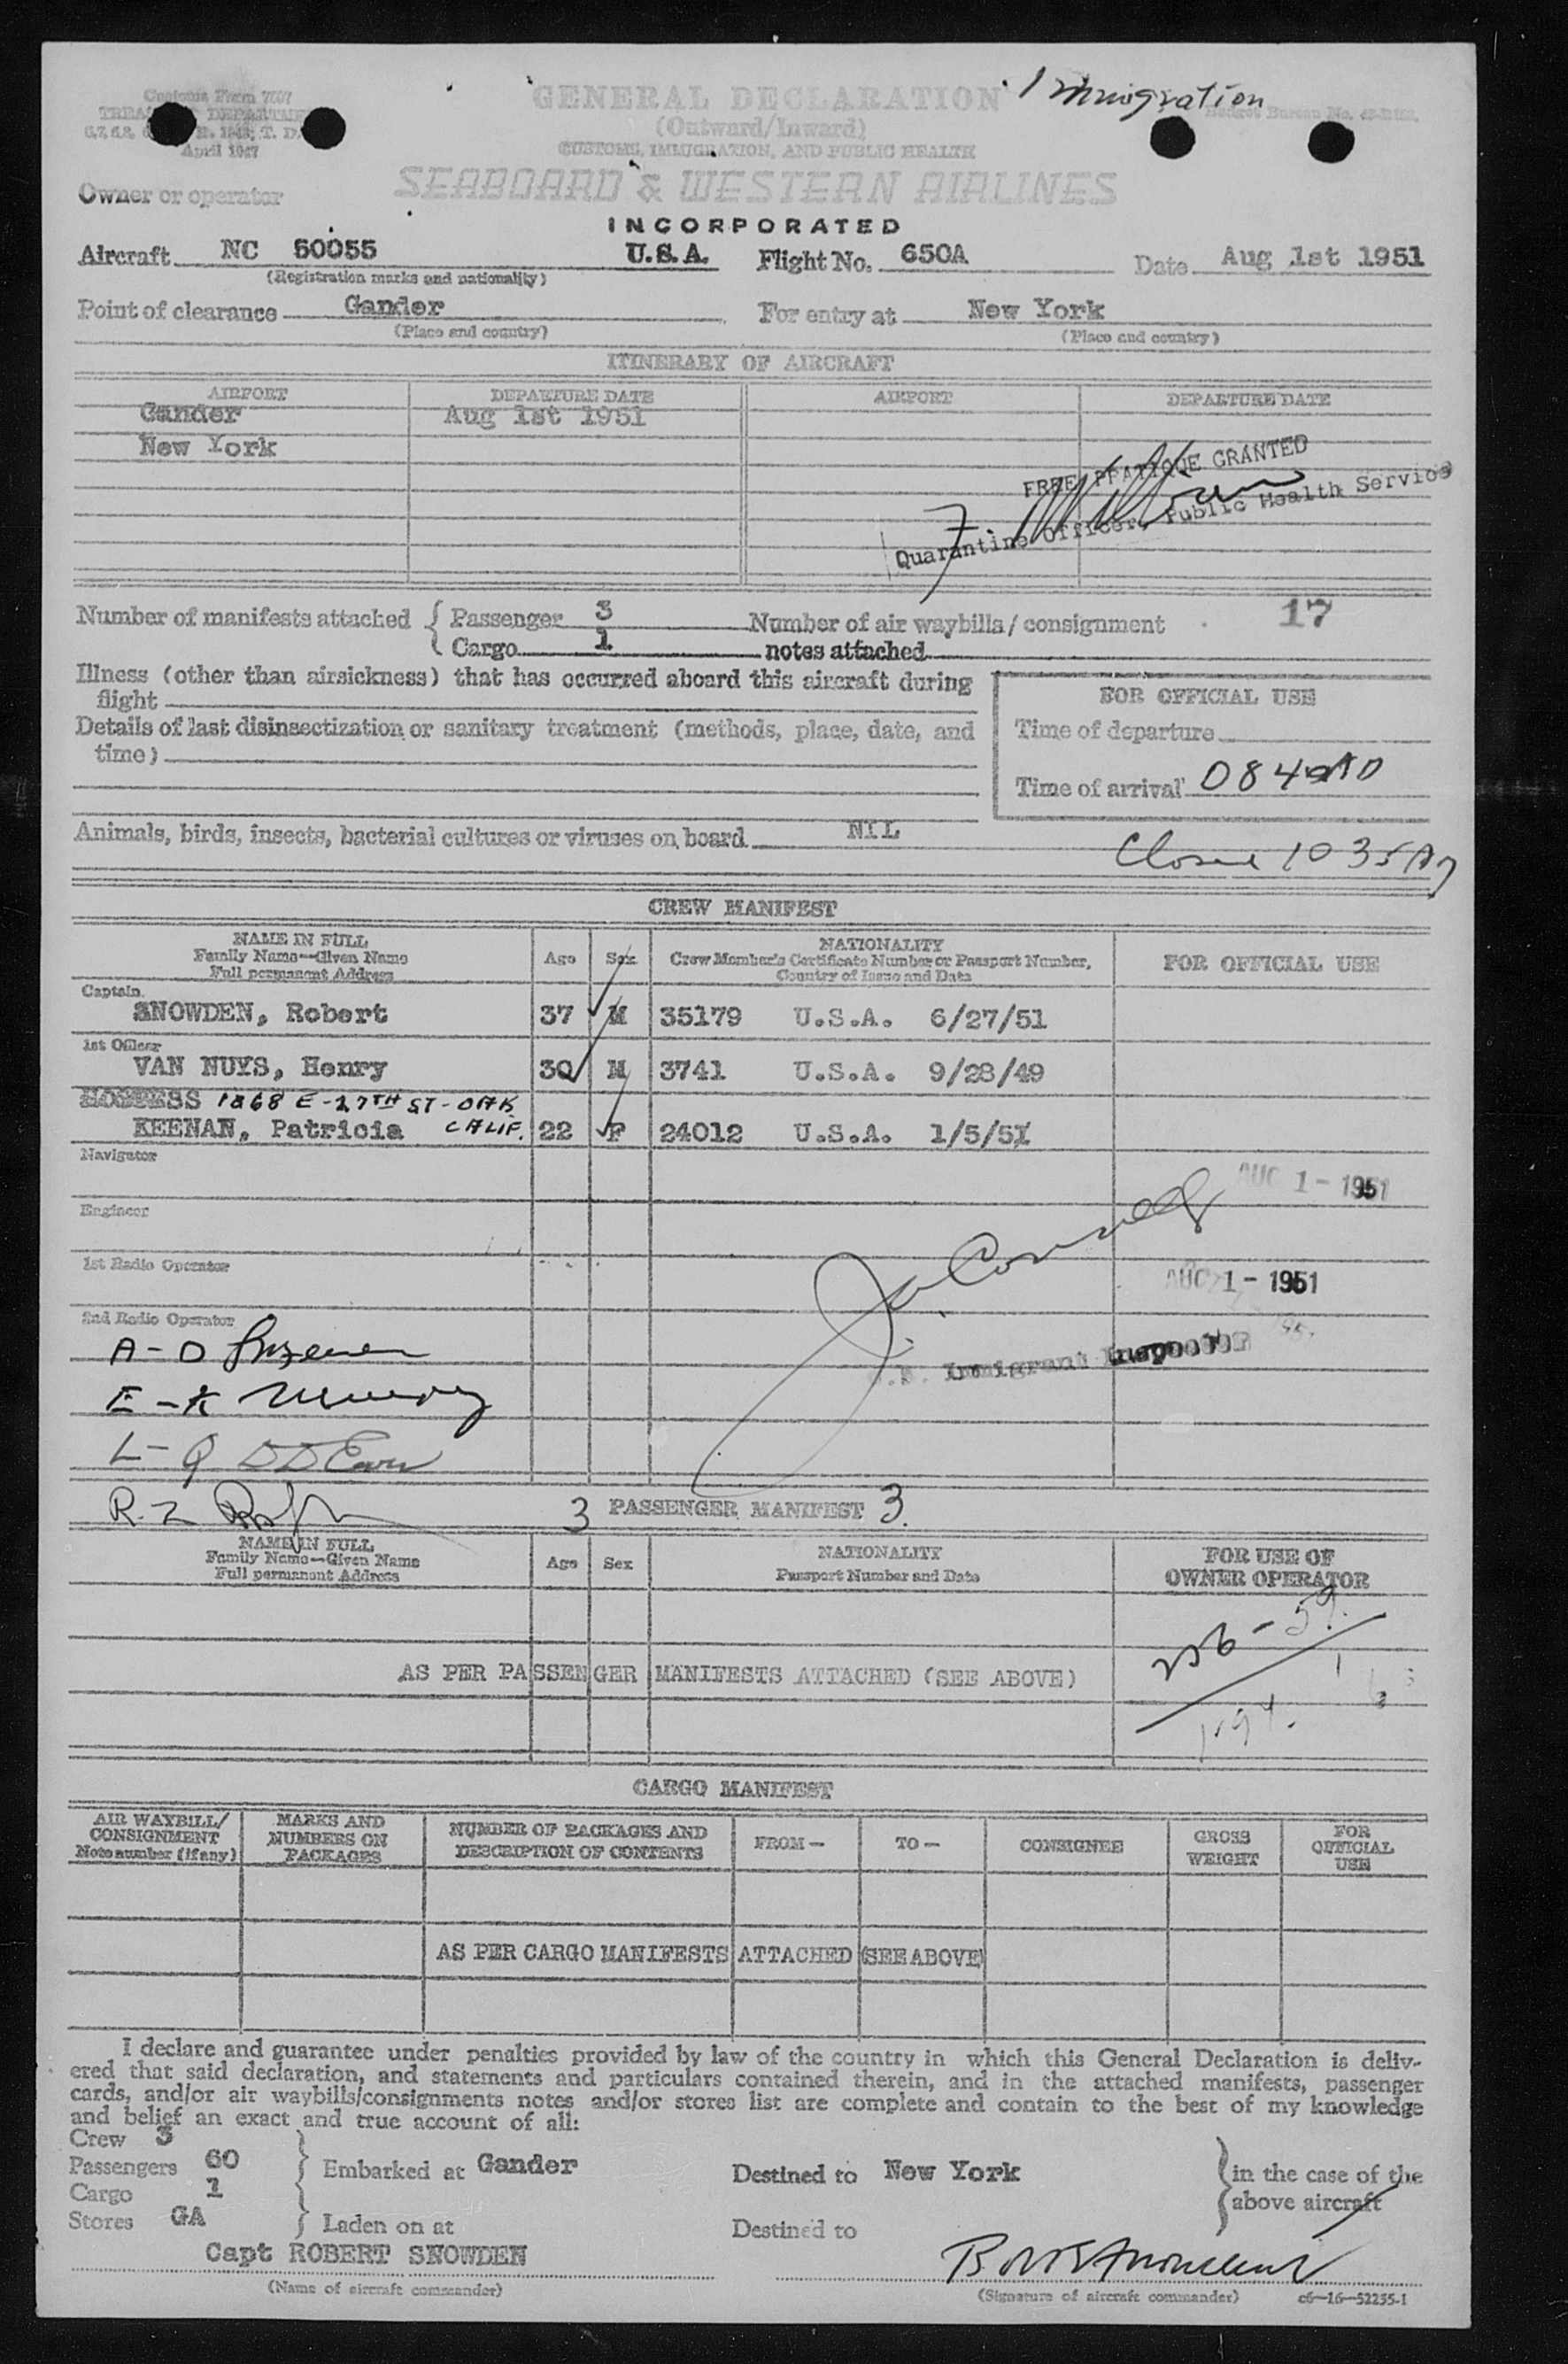 Customs Form 7507
TREASURY DEPARTMENT
April 1947
GENERAL DECLARATION
Immigration
(Outward/Inward)
CUSTOMS, IMMIGRATION, AND PUBLIC HEALTH
SEABOARD & WESTERN AIRLINES
Owner or operator
INCORPORATED
Aircraft NC 50055 U.S.A. Flight No. 650A Date Aug 1st 1951
(Registration marks and nationality)
Point of clearance Gander For entry at New York
(Place and country) (Place and country)
ITINERARY OF AIRCRAFT
AIRPORT DEPARTURE DATE AIRPORT DEPARTURE DATE
Gander Aug 1st 1951
New York
FREE PRATIQUE GRANTED
Quarantine Officer, Public Health Service
Number of manifests attached { Passenger 3 Number of air waybills/consignment 17
Cargo 1 notes attached
Illness (other than airsickness) that has occurred aboard this aircraft during
flight
FOR OFFICIAL USE
Details of last disinsectization or sanitary treatment (methods, place, date, and
time)
Time of departure
Time of arrival 0840
Animals, birds, insects, bacterial cultures or viruses on board NIL
1035A
CREW MANIFEST
NAME IN FULL
Family Name—Given Name
Full permanent Address
Age Sex
NATIONALITY
Crew Member's Certificate Number or Passport Number,
Country of Issue and Date
FOR OFFICIAL USE
Captain
SNOWDEN, Robert 37 M 35179 U.S.A. 6/27/51
1st Officer
VAN NUYS, Henry 30 M 3741 U.S.A. 9/28/49
HOSTESS 1868 E-27TH ST-OAK
KEENAN, Patricia CALIF. 22 F 24012 U.S.A. 1/5/51
Navigator
AUG 1-1951
Engineer
1st Radio Operator
AUG 1-1951
2nd Radio Operator
A-O
U.S. Immigrant Inspector
E-K
L-Q
R-Z
3 PASSENGER MANIFEST 3
NAME IN FULL
Family Name—Given Name
Full permanent Address
Age Sex
NATIONALITY
Passport Number and Date
FOR USE OF
OWNER OPERATOR
AS PER PASSENGER MANIFESTS ATTACHED (SEE ABOVE)
CARGO MANIFEST
AIR WAYBILL/
CONSIGNMENT
Note number (if any)
MARKS AND
NUMBERS ON
PACKAGES
NUMBER OF PACKAGES AND
DESCRIPTION OF CONTENTS
FROM— TO— CONSIGNEE
GROSS
WEIGHT
FOR
OFFICIAL
USE
AS PER CARGO MANIFESTS ATTACHED (SEE ABOVE)
I declare and guarantee under penalties provided by law of the country in which this General Declaration is deliv-
ered that said declaration, and statements and particulars contained therein, and in the attached manifests, passenger
cards, and/or air waybills/consignments notes and/or stores list are complete and contain to the best of my knowledge
and belief an exact and true account of all:
Crew 3
Passengers 60 Embarked at Gander Destined to New York in the case of the
Cargo 1 above aircraft
Stores GA Laden on at Destined to
Capt ROBERT SNOWDEN
(Name of aircraft commander) (Signature of aircraft commander) c6—16—52255-1